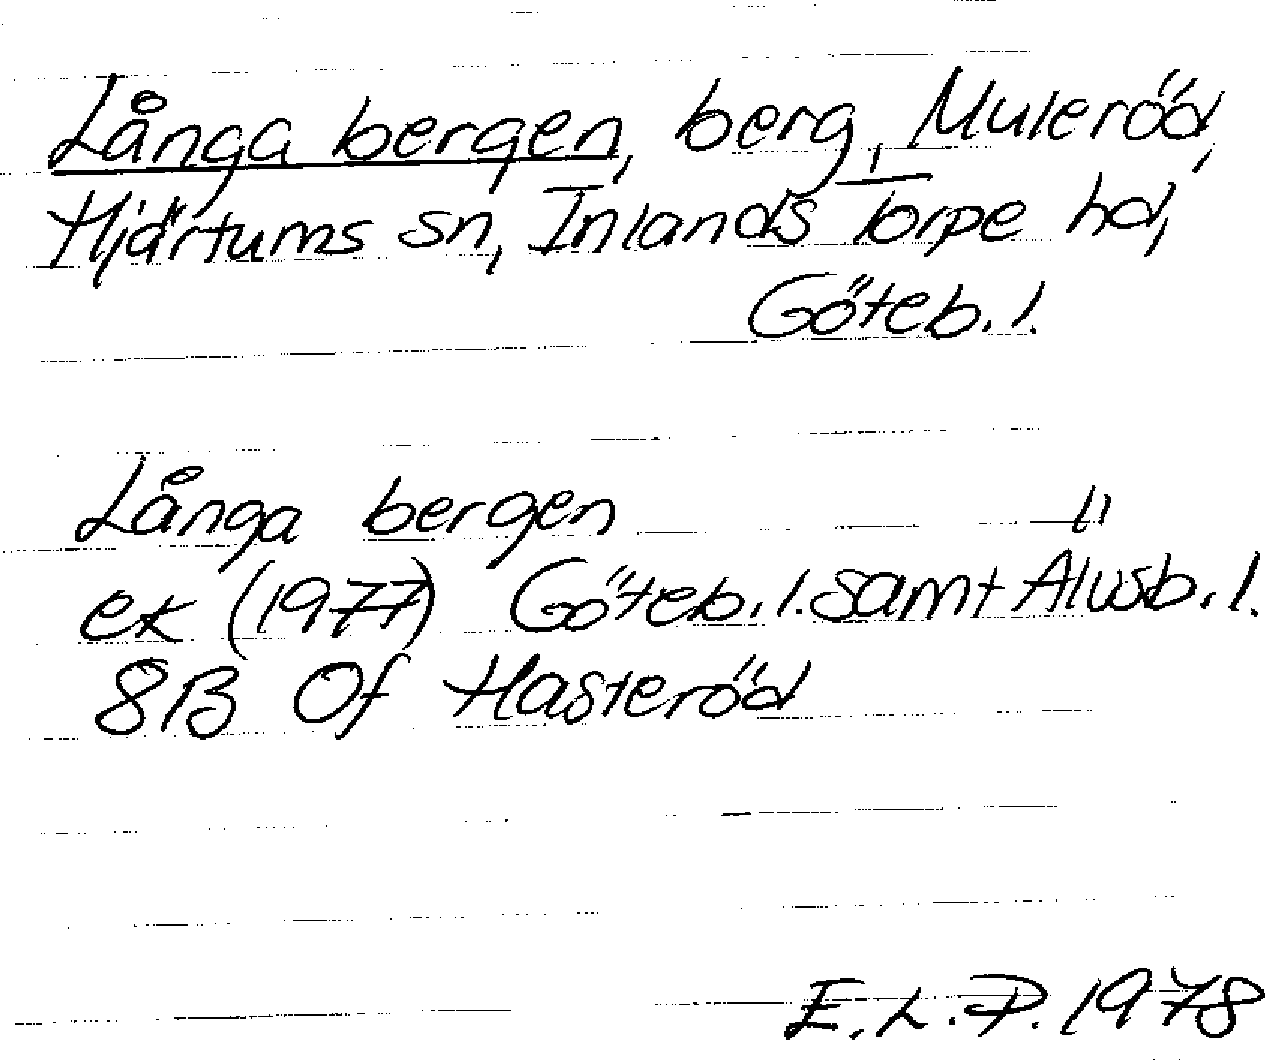 Långa bergen, berg, Muleröd,
Hjärtums sn, Inlands Torpe hd,
Göteb. l.
Långa bergen "
ek (1977) Göteb. l. samt Älvsb. l.
8B 0f Hasteröd
E. L. P. 1978